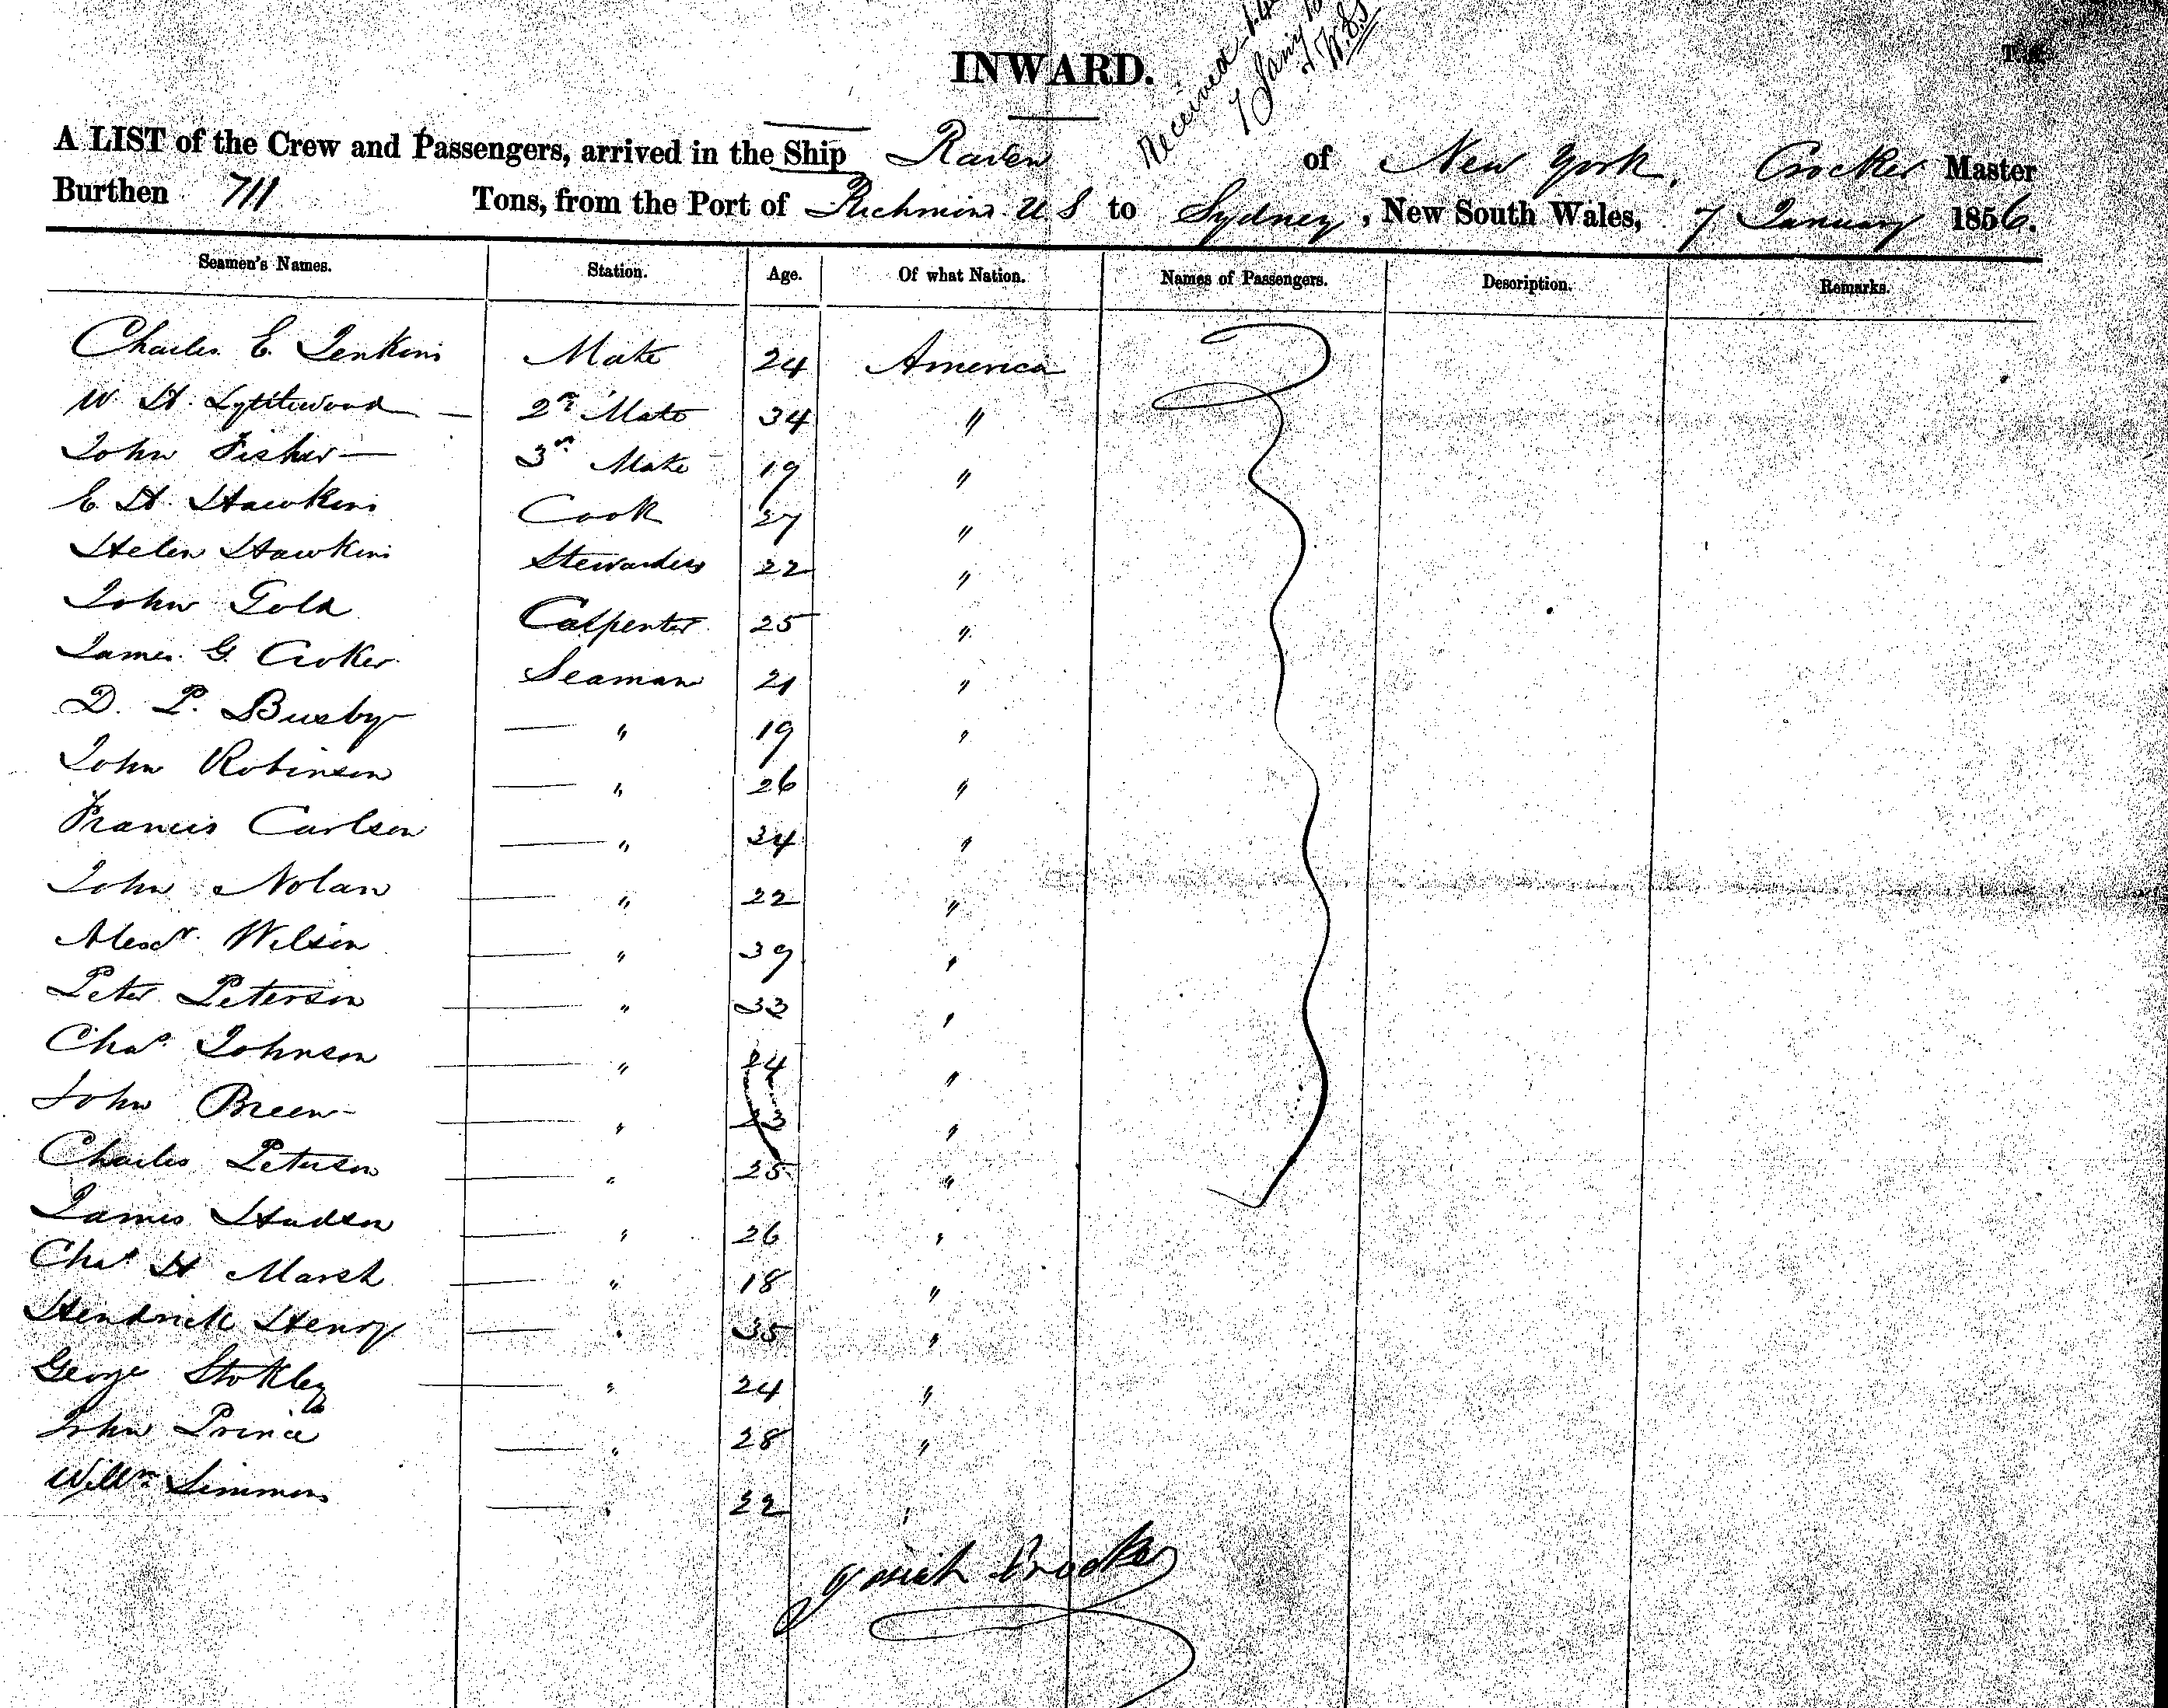 INWARD.
Received
7 Jany
A LIST of the Crew and Passengers, arrived in the Ship Raven of New York, Crocker Master
Burthen 711 Tons, from the Port of Richmond U S to Sydney, New South Wales, 7 January 1856.
Seamen's Names. Station. Age. Of what Nation. Names of Passengers. Description. Remarks.
Charles E. Jenkins Mate 24 America
W. H. 2nd Mate 34 "
John Fisher 3rd Mate 19 "
E. H. Hawkins Cook 27 "
Helen Hawkins Stewardess 22 "
John Gold Carpenter 25 "
James G. Croker Seaman 21 "
D. P. Busby — " 19 "
John Robinson — " 26 "
Francis Carlson — " 34 "
John Nolan — " 22 "
Alexr. Wilson — " 39 "
Peter Peterson — " 33 "
Chas. Johnson — " 24 "
John Breen — " 23 "
Charles Peterson — " 25 "
James Hudson — " 26 "
Chas. H Marsh — " 18 "
Hendrick Henry — " 35 "
George Stokley — " 24 "
John Prince — " 28 "
Willm. Simmons — " 22 "
Josiah Crocker